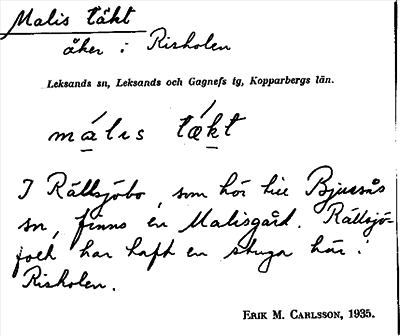 Malis täkt
åker i Risholen
Leksands sn, Leksands och Gagnefs tg, Kopparbergs län.
má̱lıs tǽ̱kt
I Rällsjöbo, som hör till Bjursås
sn, finns en Malisgård. Rällsjö-
folk har haft en stuga här i
Risholen.
ERIK M. CARLSSON, 1935.